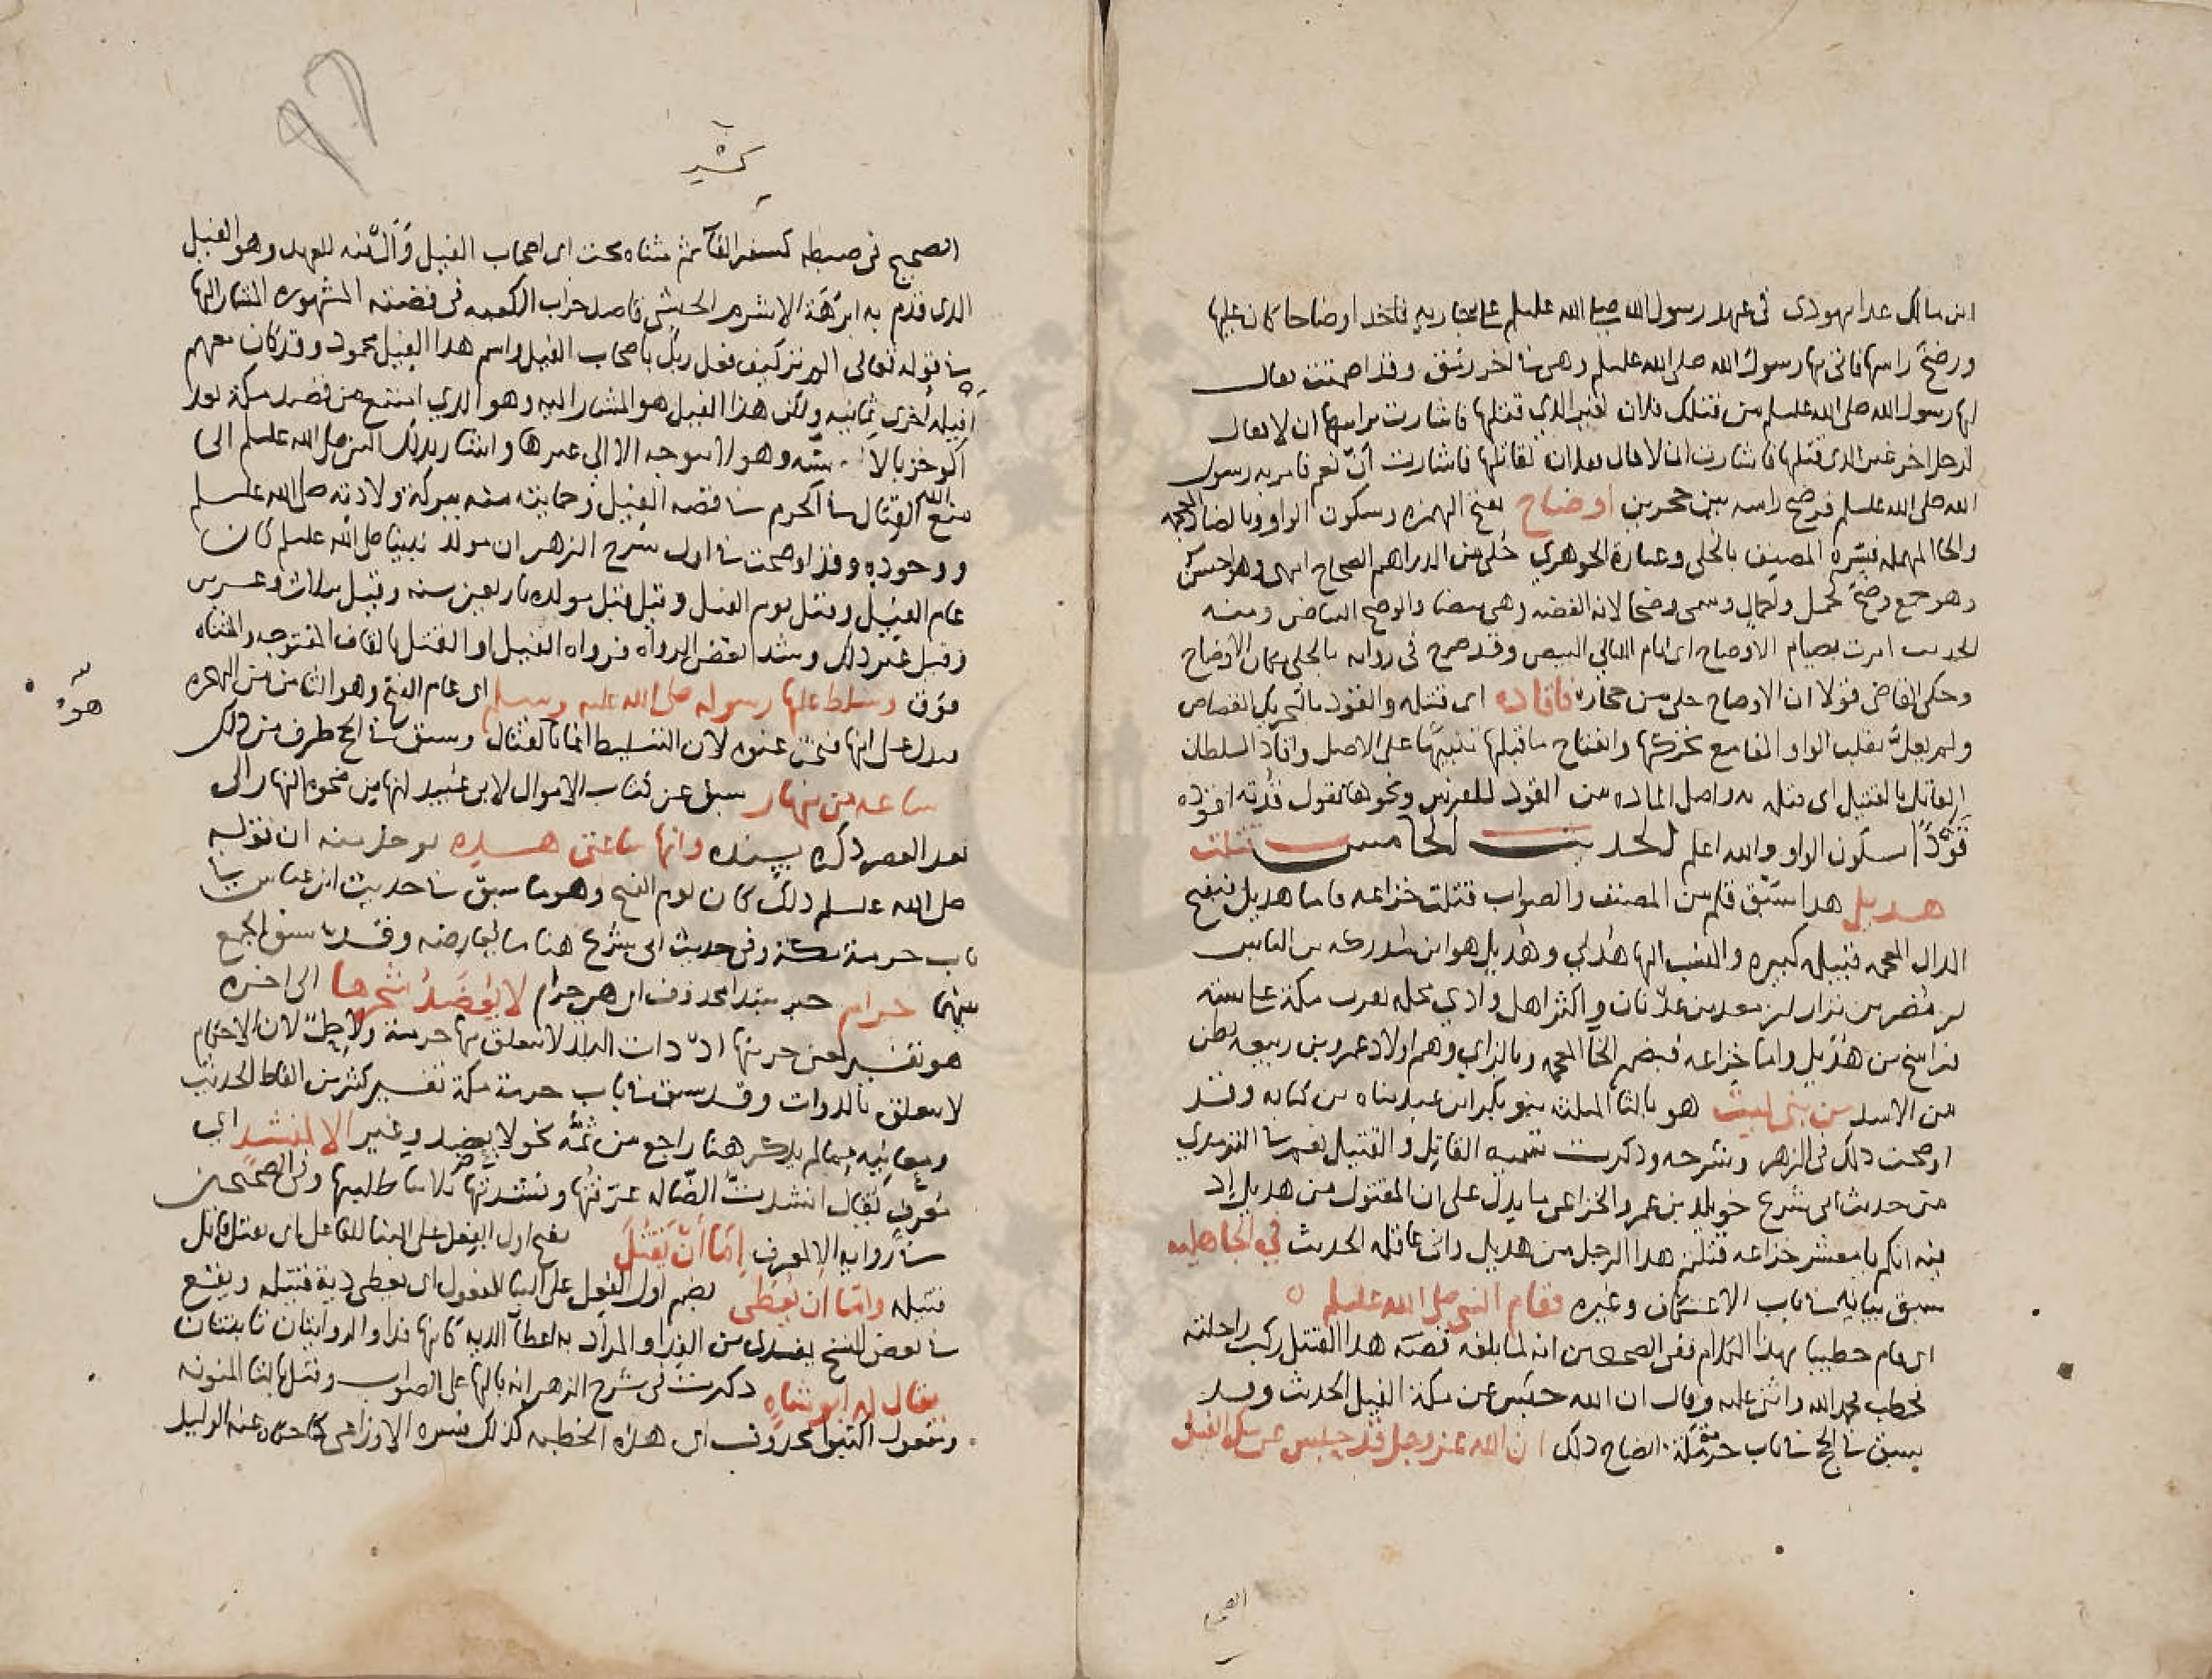 ابن مالك عدا يهودي في عهد رسول الله صلى الله عليه وسلم على جارية فاخذ اوضاحا كان عليها
ورضخ راسها فاتى بها رسول الله صلى الله عليه وسلم وهي في اخر رمق وقد اصمتت فقال
لها رسول الله صلى الله عليه وسلم من قتلك فلان لغير الذي قتلها فاشارت براسها ان لا فقال
لرجل اخر غير الذي قتلها فاشارت ان لا قال ففلان لقاتلها فاشارت ان نعم فامر به رسول
الله صلى الله عليه وسلم فرضخ راسه بين حجرين اوضاح بفتح الهمزه وسكون الواو وبالضاد المعجمه
والحا المهمله فسره المصنف بالحلى وعبارة الجوهري حلى من الدراهم الصحاح انتهى وهو حسن
وهو جمع وضح كجمل وجمال وسمي وضحا لانه الفضه وهي بيضا والوضح البياض ومنه
الحديث امرت بصيام الاوضاح اي ايام الليالي البيض وقد صرح في روايه بالحلى مكان الاوضاح
وحكى القاضي قولا ان الاوضاح حلى من حجاره فاقاده اي قتله والقود بالتحريك القصاص
ولم يعل بقلب الواو الفا مع تحركها وانفتاح ما قبلها تنبيها على الاصل واقاد السلطان
القاتل بالقتيل اي قتله به واصل الماده من القود للفرس ونحوها تقول قدته اقوده
قودا بسكون الواو والله اعلم الحديث الخامس قتلت
هذيل هذا سبق قلم من المصنف والصواب قتلت خزاعه فاما هذيل فبفتح
الذال المعجمه قبيله كبيره والنسب اليها هذلي وهذيل هو ابن مدركه بن الياس
بن مضر بن نزار بن معد بن عدنان واكثر اهل وادي نخله بقرب مكة على ستة
فراسخ من هذيل واما خزاعه فبضم الخا المعجمه وبالزاي وهم اولاد عمرو بن ربيعه بطن
من الاسد من بني ليث هو بالثا المثلثه بنو بكر ابن عبد مناه بن كنانه وقد
اوضحت ذلك في الزهر وشرحه وذكرت تسميه القاتل والقتيل نعم في الترمذي
من حديث ابي شريح خويلد بن عمرو الخزاعي ما يدل على ان المقتول من هذيل اذ
فيه انكم يا معشر خزاعه قتلتم هذا الرجل من هذيل واني عاقله الحديث في الجاهليه
سبق بيانه في باب الاعتكاف وغيره فقام النبي صلى الله عليه وسلم
اي قام خطيبا بهذا الكلام ففي الصحيحين انه لما بلغه قصة هذا القتل ركب راحلته
فخطب فحمد الله واثنى عليه وقال ان الله حبس عن مكة الفيل الحديث وقد
سبق في الحج في باب حرمة مكة ايضاح ذلك ان الله عز وجل قد حبس عن مكة الفيل
الصحيح
الصحيح في ضبطه كسر الفا ثم مثناه تحت اي اصحاب الفيل وال فيه للعهد وهو الفيل
الذي قدم به ابرهة الاشرم الحبشي قاصد خراب الكعبه في قصته المشهوره المشار اليها
في قوله تعالى الم تر كيف فعل ربك باصحاب الفيل واسم هذا الفيل محمود وقد كان معهم
افيله اخرى ثمانيه ولكن هذا الفيل هو المشار اليه وهو الذي امتنع من قصد مكة بعد
وهو لا يتوجه الا الى غيرها واشار بذلك النبي صلى الله عليه وسلم الى
منع الله القتال في الحرم في قصه الفيل وحمايته منه ببركة ولادته صلى الله عليه وسلم
ووجوده وقد اوضحت في اول شرح الزهر ان مولد نبينا صلى الله عليه وسلم كان
عام الفيل وقيل يوم الفيل وقيل قبل مولده باربعين سنه وقيل بثلاث وعشرين
وقيل غير ذلك وشذ بعض الرواه فرواه الفيل او القتل بالقاف المفتوحه والمثناه
فوق وسلط عليها رسوله صلى الله عليه وسلم اي عام الفتح وهو الثامن من الهجره
يدل على انها فتحت عنوه لان التسليط انما بالقتال وسبق في الحج طرف من ذلك
ساعه من نهار سبق عن كتاب الاموال لابن عبيد انها من ضحوه النهار الى
بعد العصر ذكره بسنده وانها ساعتي هذه يوخذ منه ان قوله
صلى الله عليه وسلم ذلك كان يوم الفتح وهو ما سبق في حديث ابن عباس في
باب حرمة مكة وفي حديث ابي شريح هنا ما يعارضه وقد سبق الجمع
بينهما حرام خبر مبتدا محذوف اي هي حرام لا يعضد شجرها الى اخره
هو تفسير لمعنى حرمتها اذ ذات البلد لا يتعلق بها حرمة ولا حل لان الاحكام
لا تتعلق بالذوات وقد سبق في باب حرمة مكة تفسير كثير من الفاظ الحديث
ومعانيه فما لم يذكر هنا راجع من ثمه نحو لا يعضد وغير الا لمنشد اي
معرف يقال انشدت الضاله عرفتها ونشدتها ثلاثا طلبتها وفي الصحيحين
في روايه الا لمعرف اما ان يقتل بفتح اول الفعل على البنا للفاعل اي يقتل قاتل
قتيله واما ان يعطى بضم اول الفعل على البنا للمفعول اي يعطى دية قتيله ويقع
في بعض النسخ يفدى من الفدا والمراد به اعطا الديه كانها فدا والروايتان ثابتتان
فقال له ابو شاه ذكرت في شرح الزهر انه بالها على الصواب وقيل بالتا المنونه
ومفعول اكتبوا محذوف اي هذه الخطبه كذلك فسره الاوزاعي كما حكاه عنه الوليد
هو